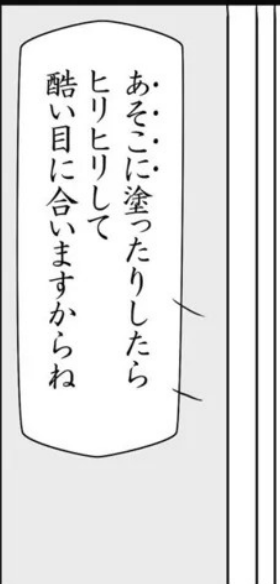 あそこに塗ったりしたら
ヒリヒリして
酷い目に合いますからね